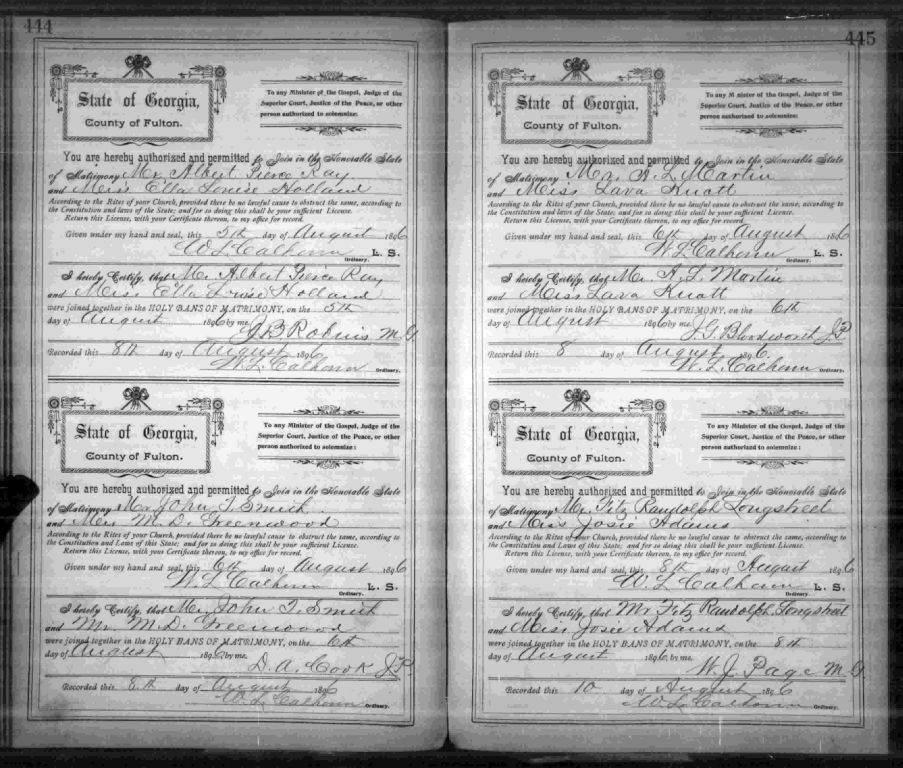 444
State of Georgia,
County of Fulton.
To any Minister of the Gospel, Judge of the
Superior Court, Justice of the Peace, or other
person authorized to solemnize:
You are hereby authorized and permitted to Join in the Honorable State
of Matrimony Mr. Albert Pierce Ray
and Miss Ella Louise Holland
According to the Rites of your Church, provided there be no lawful cause to obstruct the same, according to
the Constitution and laws of the State; and for so doing this shall be your sufficient License.
Return this License, with your Certificate thereon, to my office for record.
Given under my hand and seal, this 5th day of August 1896
W L Calhoun L. S.
Ordinary.
I hereby Certify, that Mr. Albert Pierce Ray
and Miss Ella Louise Holland
were joined together in the HOLY BANS OF MATRIMONY, on the 5th
day of August 1896 by me.
J B Robins M G
Recorded this 8th day of August 1896
W. L. Calhoun Ordinary.
State of Georgia,
County of Fulton.
To any Minister of the Gospel, Judge of the
Superior Court, Justice of the Peace, or other
person authorized to solemnize:
You are hereby authorized and permitted to Join in the Honorable State
of Matrimony Mr. John T. Smith
and M. D. Greenwood
According to the Rites of your Church, provided there be no lawful cause to obstruct the same, according to
the Constitution and Laws of this State; and for so doing this shall be your sufficient License.
Return this License, with your Certificate thereon, to my office for record.
Given under my hand and seal, this 6th day of August 1896
W. L. Calhoun L. S.
Ordinary.
I hereby Certify, that Mr. John T. Smith
and M. D. Greenwood
were joined together in the HOLY BANS OF MATRIMONY, on the 6th
day of August 1896 by me.
D. A. Cook J.P.
Recorded this 8th day of August 1896
W. L. Calhoun Ordinary.
445
State of Georgia,
County of Fulton.
To any Minister of the Gospel, Judge of the
Superior Court, Justice of the Peace, or other
person authorized to solemnize:
You are hereby authorized and permitted to Join in the Honorable State
of Matrimony Mr. A. L. Martin
and Miss Lava Knott
According to the Rites of your Church, provided there be no lawful cause to obstruct the same, according to
the Constitution and laws of the State; and for so doing this shall be your sufficient License.
Return this License, with your Certificate thereon, to my office for record.
Given under my hand and seal, this 6th day of August 1896
W. L. Calhoun L. S.
Ordinary.
I hereby Certify, that Mr. A. L. Martin
and Miss Lava Knott
were joined together in the HOLY BANS OF MATRIMONY, on the 6th
day of August 1896 by me.
J. G. Bloodworth J.P.
Recorded this 8 day of August 1896.
W. L. Calhoun Ordinary.
State of Georgia,
County of Fulton.
To any Minister of the Gospel, Judge of the
Superior Court, Justice of the Peace, or other
person authorized to solemnize:
You are hereby authorized and permitted to Join in the Honorable State
of Matrimony Mr. Fitz Randolph Longstreet
and Miss Josie Adams
According to the Rites of your Church, provided there be no lawful cause to obstruct the same, according to
the Constitution and Laws of this State; and for so doing this shall be your sufficient License.
Return this License, with your Certificate thereon, to my office for record.
Given under my hand and seal, this 8th day of August 1896
W. L. Calhoun L. S.
Ordinary.
I hereby Certify, that Mr Fitz Randolph Longstreet
and Miss Josie Adams
were joined together in the HOLY BANS OF MATRIMONY, on the 8th
day of August 1896, by me,
W. J. Page M G
Recorded this 10 day of August 1896
W L Calhoun Ordinary.